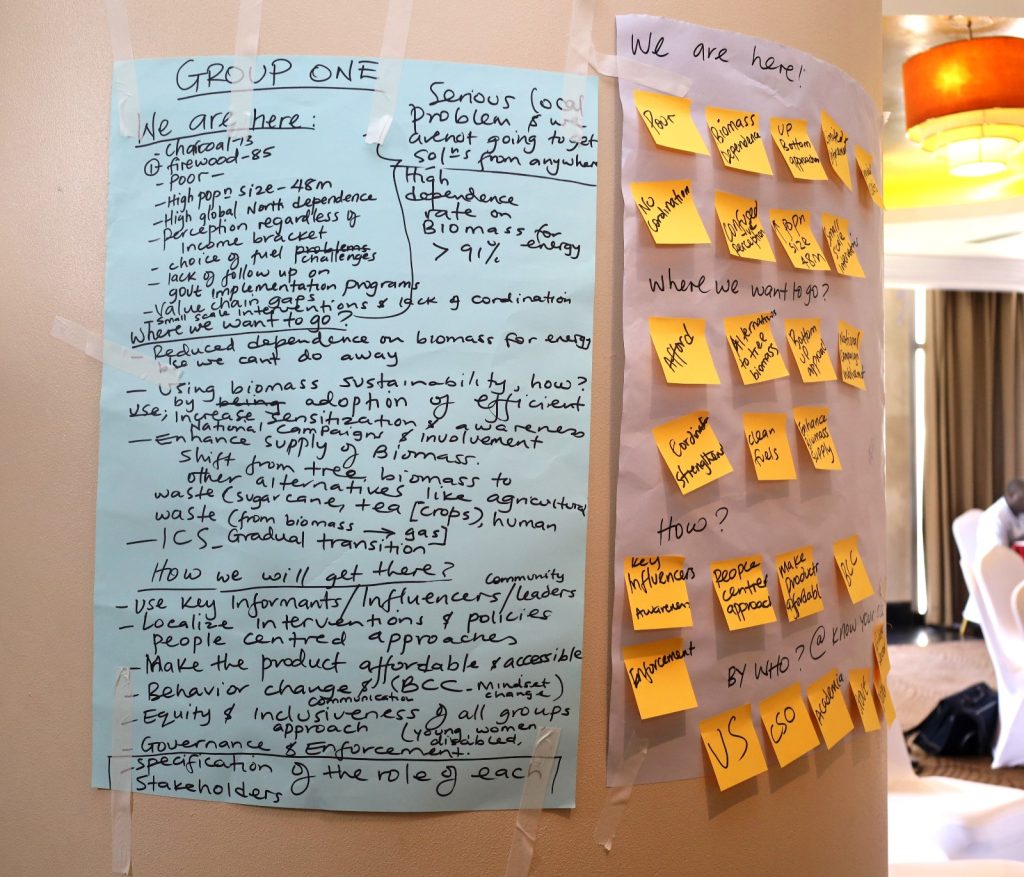 GROUP ONE
We are here:
- Charcoal-13
① firewood-85
- Poor -
- High popn size - 48m
- High global North dependence
- Perception regardless of
income bracket
- choice of fuel problems
challenges
- lack of follow up on
govt implementation programs
- Value chain gaps
small scale interventions & lack of cordination
Serious local
Problem &
are not going to get
solns from anywhere
High
dependence
rate on
Biomass for
energy
> 91%
Where we want to go?
- Reduced dependence on biomass for energy
we cant do away
- Using biomass sustainability, how?
by being adoption of efficient
use; increase sensitization & awareness
National Campaigns & involvement
- Enhance supply of Biomass.
shift from tree biomass to
other alternatives like agricultural
waste (sugarcane, tea [crops), human
waste (from biomass → gas]
- ICS_ Gradual transition
How we will get there?
- Use key Informants/Influencers/leaders
community
- Localize interventions & policies
people centred approaches
- Make the product affordable & accessible
- Behavior change & (BCC - Mindset
communication change)
- Equity & inclusiveness of all groups
approach (young women
disabled,
- Governance & Enforcement.
specification of the role of each
Stakeholders
We are here!
Poor
Biomass
Dependence
UP
Bottom
approach
No
Cordination
Confused
Perception
↑ Popn
Size
48m
Small
Scale
Where we want to go?
Afford
Alternatives
to tree
biomass
Bottom
up
approach
National
Campaigns
Involvement
Cordination
Strengthened
Clean
fuels
Enhance
Biomass
Supply
How?
Key
Influencers
Awareness
People
centred
approach
Make
Products
affordable
BCC
Enforcement
BY WHO? @ know your
US
CSO
Academia